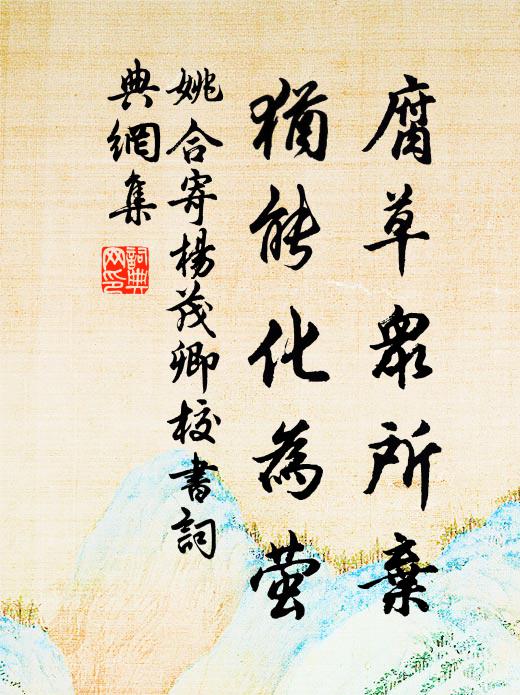 腐草眾所棄
猶能化為螢
姚合寄楊茂卿校書詞
典網集
詞典
网印